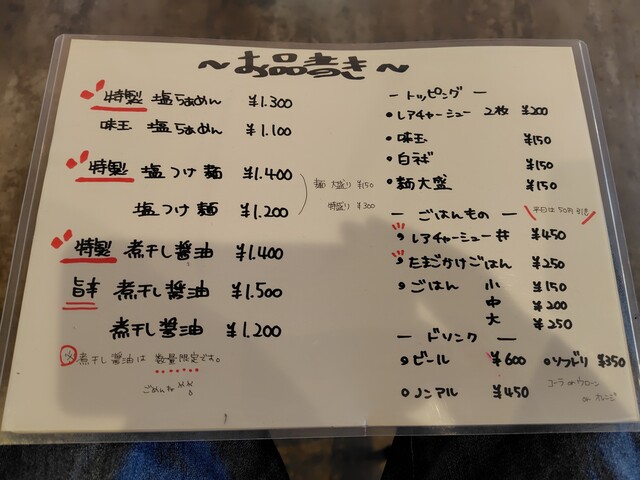 ～お品書き～
特製 塩らぁめん ¥1.300
味玉 塩らぁめん ¥1.100
特製 塩つけ麺 ¥1.400
塩つけ麺 ¥1.200
麺 大盛り ¥150
特盛り ¥300
特製 煮干し醤油 ¥1.400
旨辛 煮干し醤油 ¥1.500
煮干し醤油 ¥1.200
※煮干し醤油は 数量限定です。
ごめんね
ー トッピング ー
・レアチャーシュー 2枚 ¥200
・味玉 ¥150
・白ネギ ¥150
・麺大盛 ¥150
ー ごはんもの ー
平日は50円引き
・レアチャーシュー丼 ¥450
・たまごかけごはん ¥250
・ごはん 小 ¥150
中 ¥200
大 ¥250
ー ドリンク ー
・ビール ¥600 ・ソフドリ ¥350
コーラ or ウーロン
or オレンジ
・ノンアル ¥450